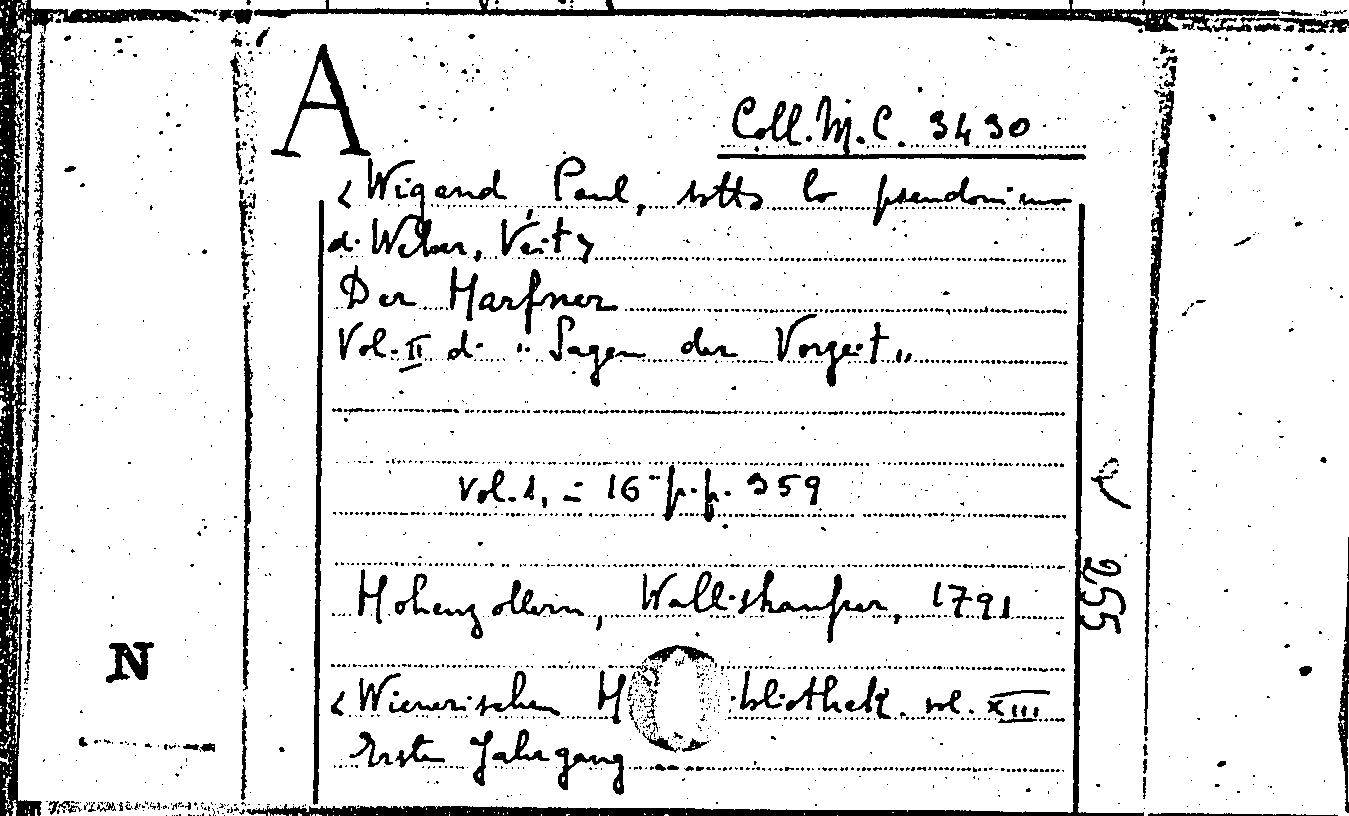 A
Coll. M. C. 3430
<Wigand Paul, sotto lo pseudonimo
di Weber, Veit>
Der Harfner
Vol. II di "Sagen der Vorzeit"
vol. 1, = 16° p.p. 359
Hohenzollern, Wallishauser, 1791
<Wienerischen H bliothek. vol. XIII
Erste Jahrgang ....
255
N